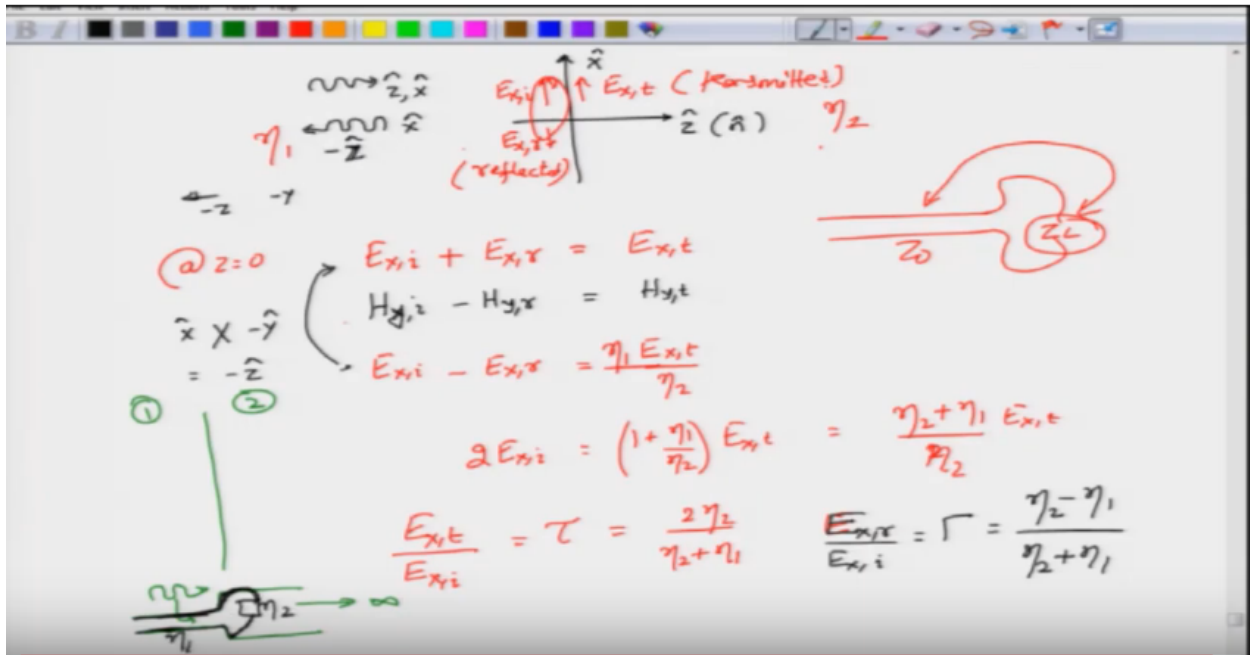 B I
x̂
ẑ, x̂
E_{x,i} E_{x,t} (transmitted)
x̂
ẑ (n̂)
η_1
-ẑ
E_{x,r}
(reflected)
η_2
-z -y
Z_0
Z_L
@ z=0
E_{x,i} + E_{x,r} = E_{x,t}
H_{y,i} - H_{y,r} = H_{y,t}
x̂ X -ŷ
= -ẑ
E_{x,i} - E_{x,r} = \frac{η_1 E_{x,t}}{η_2}
① ②
2E_{x,i} = (1 + \frac{η_1}{η_2}) E_{x,t} = \frac{η_2 + η_1}{η_2} E_{x,t}
\frac{E_{x,t}}{E_{x,i}} = τ = \frac{2η_2}{η_2+η_1}
\frac{E_{x,r}}{E_{x,i}} = Γ = \frac{η_2 - η_1}{η_2 + η_1}
η_2 ∞
η_1